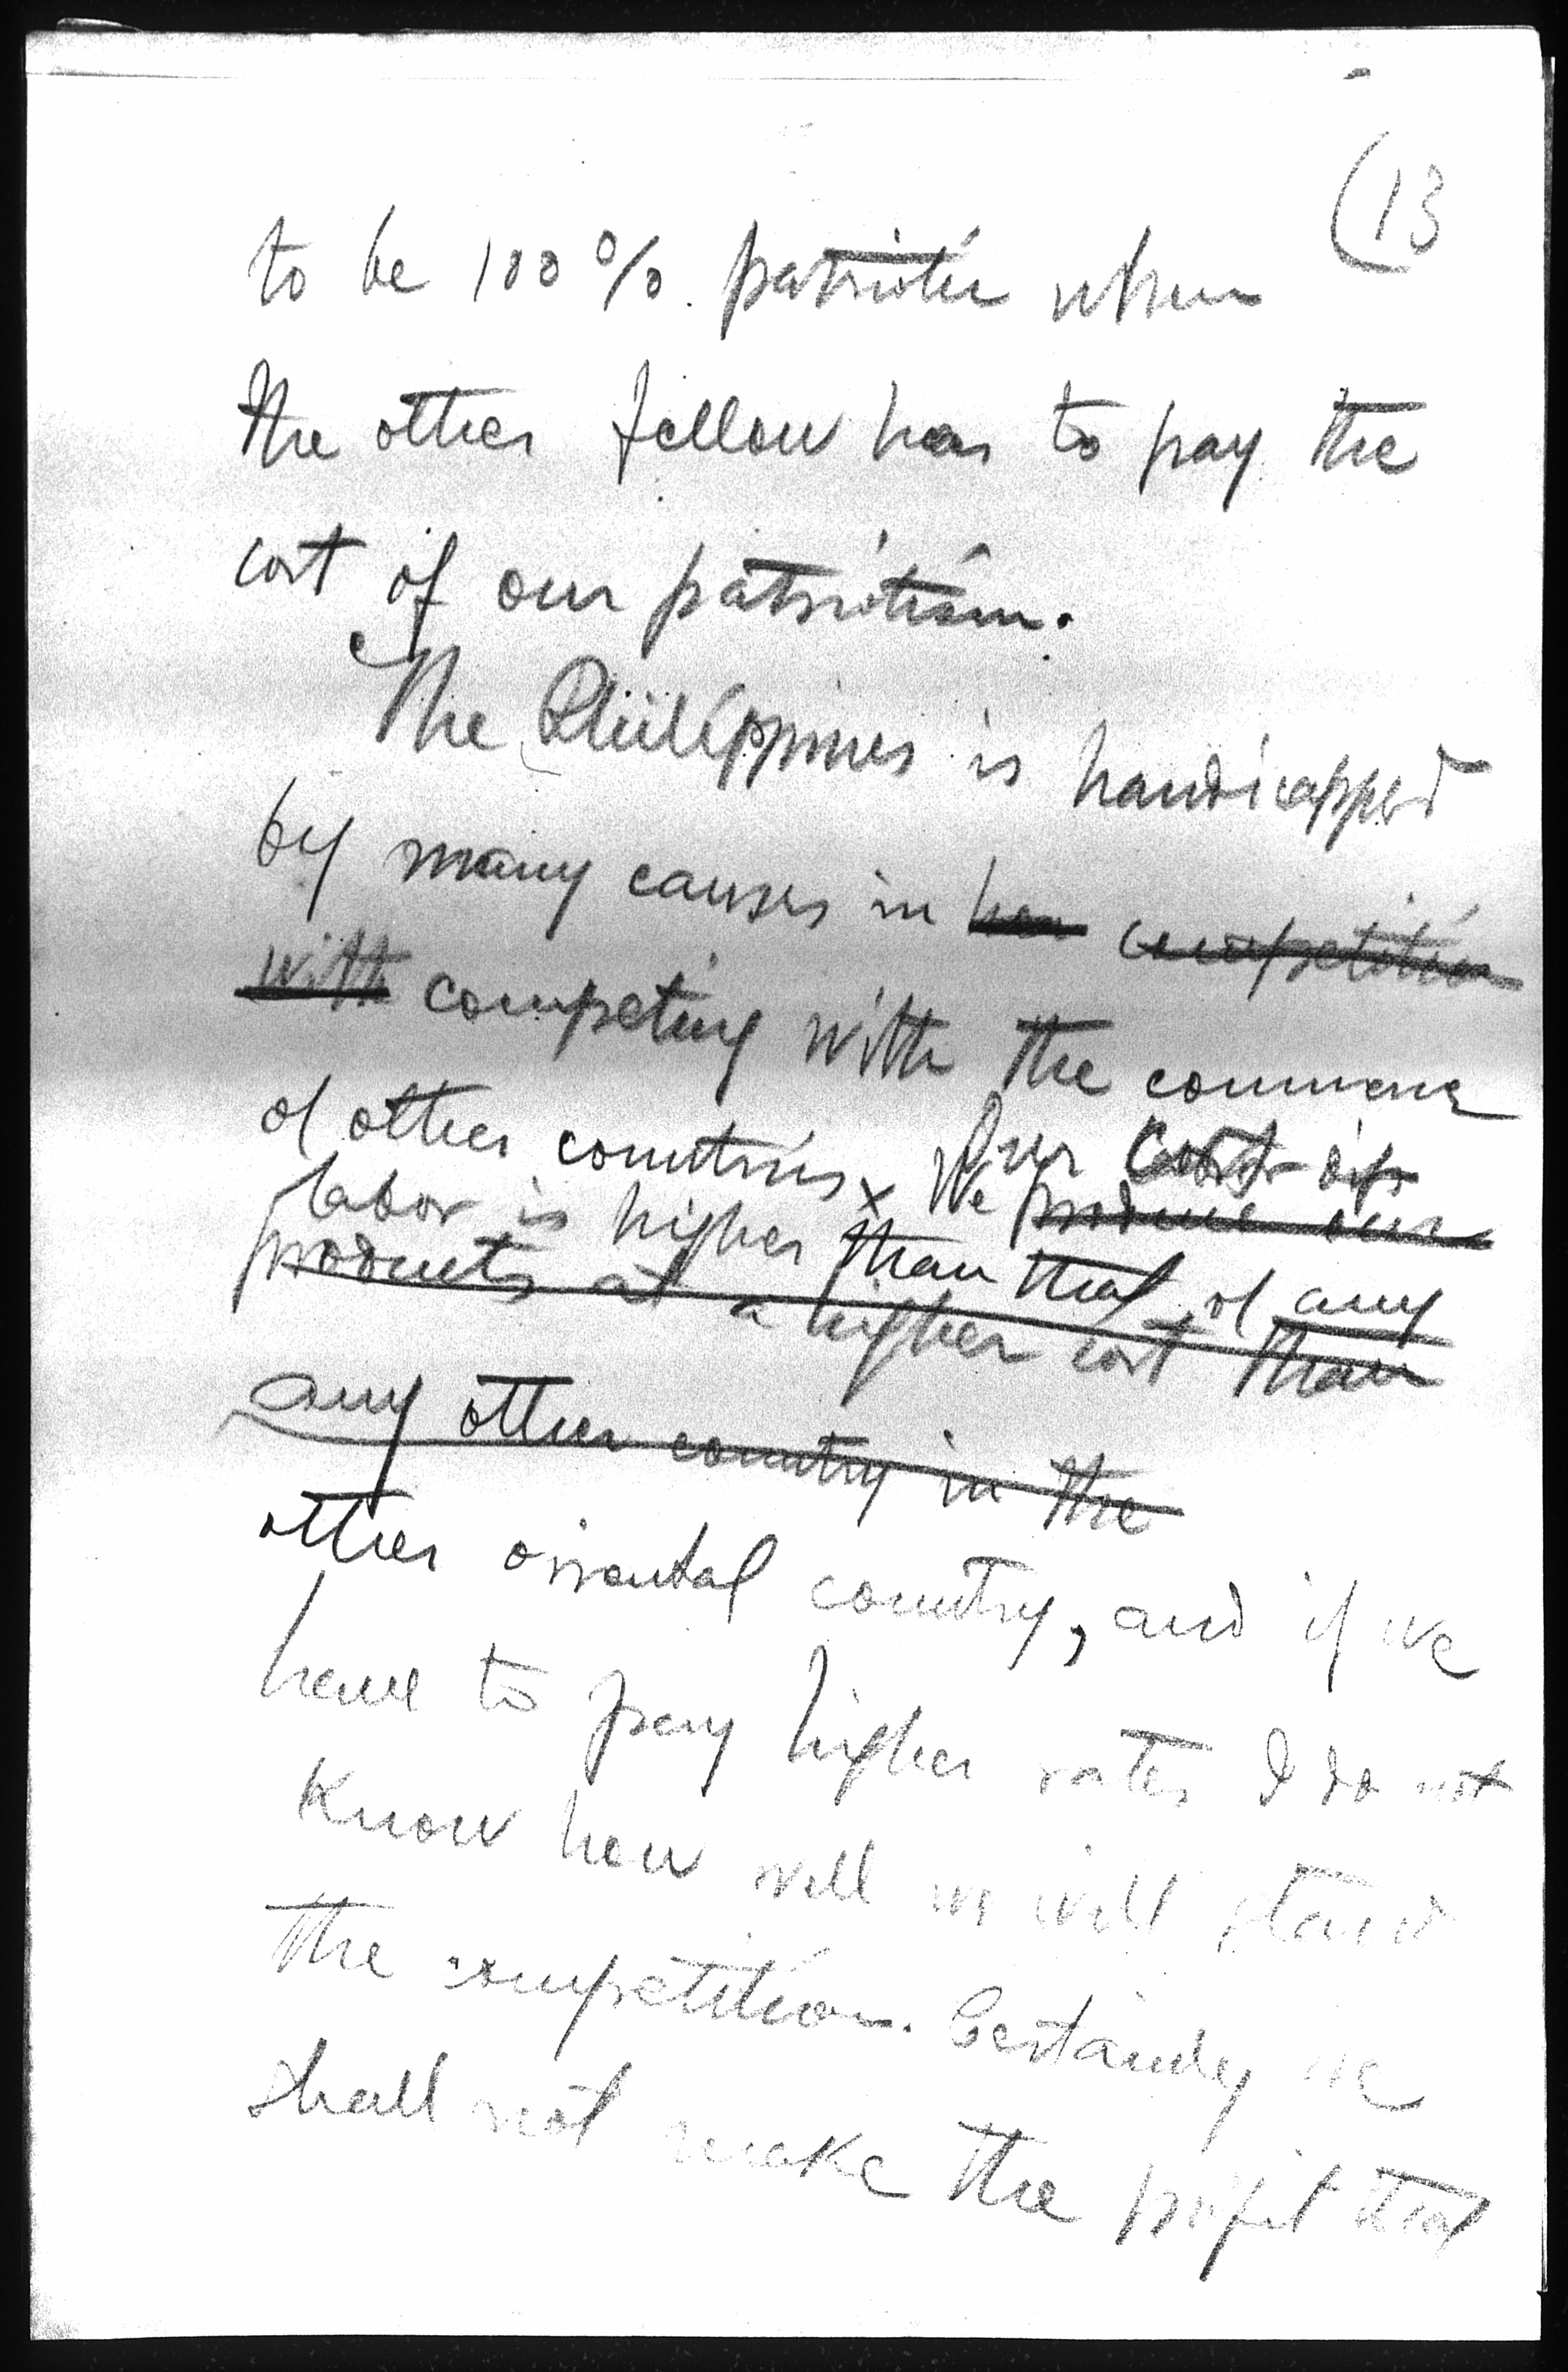 (13
to be 100%. patriotic when
the other fellow has to pay the
cost of our patriotism.
The Philippines is handicapped
by many causes in her competition
with competing with the commerce
of other countries x Our cost of
We produce our
labor is higher than that of any
products at a higher cost than
any other country in the
other oriental country, and if we
have to pay higher rates I do not
know how well we will stand
the competition. Certainly we
shall not make the profit that